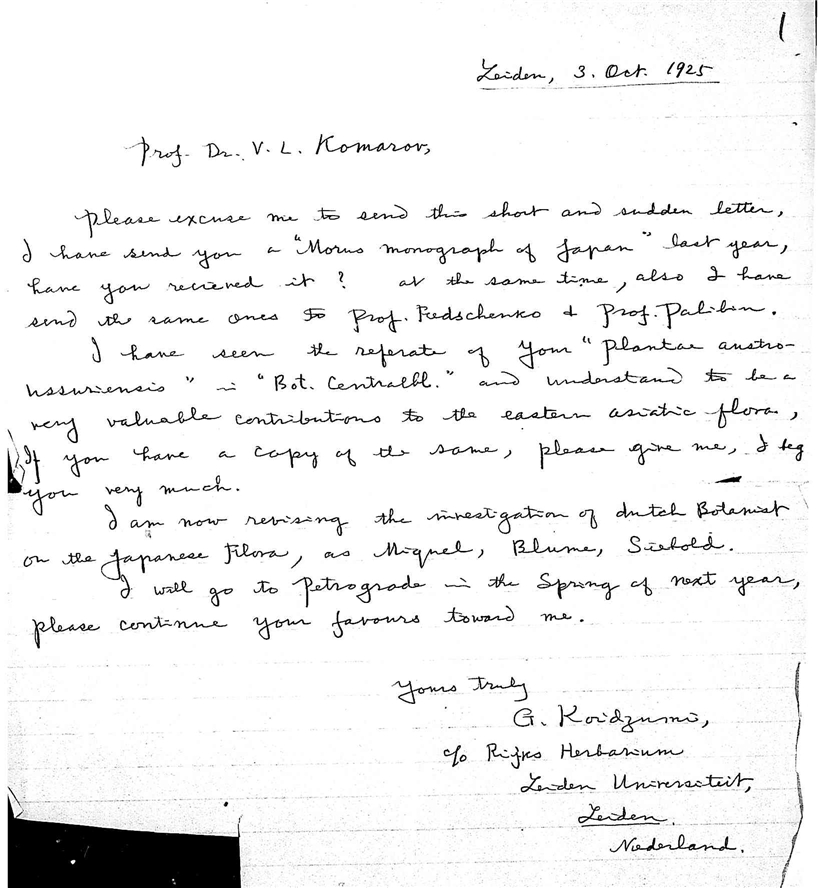 1
Leiden, 3. Oct. 1925
Prof. Dr. V. L. Komarov,
Please excuse me to send this short and sudden letter,
I have send you a "Morus monograph of Japan" last year,
have you recieved it? at the same time, also I have
send the same ones to Prof. Fedschenko & Prof. Palibin.
I have seen the referate of your "Plantae austro-
ussuriensis" in "Bot. Centralbl." and understand to be a
very valuable contributions to the eastern asiatic flora,
If you have a copy of the same, please give me, I beg
you very much.
I am now revising the investigation of dutch Botanist
on the Japanese Flora, as Miquel, Blume, Siebold.
I will go to Petrograde in the Spring of next year,
please continue your favours toward me.
Yours truly
G. Koidzumi,
c/o Rijks Herbarium
Leiden Universiteit,
Leiden.
Nederland.